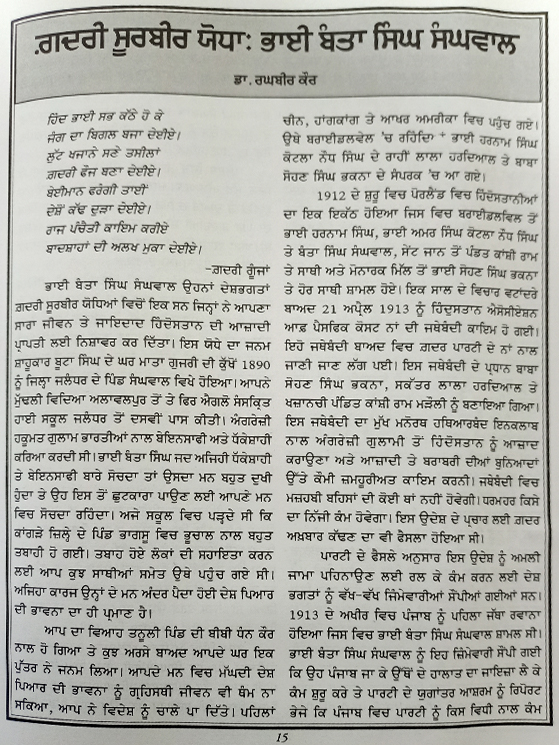 ਗ਼ਦਰੀ ਸੂਰਬੀਰ ਯੋਧਾ: ਭਾਈ ਬੰਤਾ ਸਿੰਘ ਸੰਘਵਾਲ
ਡਾ. ਰਘਬੀਰ ਕੌਰ
ਹਿੰਦ ਭਾਈ ਸਭ ਕੱਠੇ ਹੋ ਕੇ
ਜੰਗ ਦਾ ਬਿਗਲ ਬਜਾ ਦੇਈਏ।
ਲੁੱਟ ਖਜਾਨੇ ਸਣੇ ਤਸੀਲਾਂ
ਗ਼ਦਰੀ ਫੌਜ ਬਣਾ ਦੇਈਏ।
ਬੇਈਮਾਨ ਫਰੰਗੀ ਤਾਈਂ
ਦੇਸ਼ੋਂ ਕੱਢ ਦੁੜਾ ਦੇਈਏ।
ਰਾਜ ਪੰਚੈਤੀ ਕਾਇਮ ਕਰੀਏ
ਬਾਦਸ਼ਾਹਾਂ ਦੀ ਅਲਖ ਮੁਕਾ ਦੇਈਏ।
-ਗ਼ਦਰੀ ਗੂੰਜਾਂ
ਭਾਈ ਬੰਤਾ ਸਿੰਘ ਸੰਘਵਾਲ ਉਹਨਾਂ ਦੇਸ਼ਭਗਤਾਂ
ਗ਼ਦਰੀ ਸੂਰਬੀਰ ਯੋਧਿਆਂ ਵਿਚੋਂ ਇਕ ਸਨ ਜਿਨ੍ਹਾਂ ਨੇ ਆਪਣਾ
ਸਾਰਾ ਜੀਵਨ ਤੇ ਜਾਇਦਾਦ ਹਿੰਦੋਸਤਾਨ ਦੀ ਆਜ਼ਾਦੀ
ਪ੍ਰਾਪਤੀ ਲਈ ਨਿਸ਼ਾਵਰ ਕਰ ਦਿੱਤਾ। ਇਸ ਯੋਧੇ ਦਾ ਜਨਮ
ਸ਼ਾਹੂਕਾਰ ਬੂਟਾ ਸਿੰਘ ਦੇ ਘਰ ਮਾਤਾ ਗੁਜਰੀ ਦੀ ਕੁੱਖੋਂ 1890
ਨੂੰ ਜਿਲ੍ਹਾ ਜਲੰਧਰ ਦੇ ਪਿੰਡ ਸੰਘਵਾਲ ਵਿਖੇ ਹੋਇਆ। ਆਪਨੇ
ਮੁੱਢਲੀ ਵਿਦਿਆ ਅਲਾਵਲਪੁਰ ਤੋਂ ਤੇ ਫਿਰ ਐਗਲੋ ਸੰਸਕ੍ਰਿਤ
ਹਾਈ ਸਕੂਲ ਜਲੰਧਰ ਤੋਂ ਦਸਵੀਂ ਪਾਸ ਕੀਤੀ। ਅੰਗਰੇਜ਼ੀ
ਹਕੂਮਤ ਗੁਲਾਮ ਭਾਰਤੀਆਂ ਨਾਲ ਬੇਇਨਸਾਫੀ ਅਤੇ ਧੱਕੇਸ਼ਾਹੀ
ਕਰਿਆ ਕਰਦੀ ਸੀ। ਭਾਈ ਬੰਤਾ ਸਿੰਘ ਜਦ ਅਜਿਹੀ ਧੱਕੇਸ਼ਾਹੀ
ਤੇ ਬੇਇਨਸਾਫੀ ਬਾਰੇ ਸੋਚਦਾ ਤਾਂ ਉਸਦਾ ਮਨ ਬਹੁਤ ਦੁਖੀ
ਹੁੰਦਾ ਤੇ ਉਹ ਇਸ ਤੋਂ ਛੁਟਕਾਰਾ ਪਾਉਣ ਲਈ ਆਪਣੇ ਮਨ
ਵਿਚ ਸੋਚਦਾ ਰਹਿੰਦਾ। ਅਜੇ ਸਕੂਲ ਵਿਚ ਪੜ੍ਹਦੇ ਸੀ ਕਿ
ਕਾਂਗੜੇ ਜ਼ਿਲ੍ਹੇ ਦੇ ਪਿੰਡ ਭਾਗਸੂ ਵਿਚ ਭੂਚਾਲ ਨਾਲ ਬਹੁਤ
ਤਬਾਹੀ ਹੋ ਗਈ। ਤਬਾਹ ਹੋਏ ਲੋਕਾਂ ਦੀ ਸਹਾਇਤਾ ਕਰਨ
ਲਈ ਆਪ ਕੁਝ ਸਾਥੀਆਂ ਸਮੇਤ ਉਥੇ ਪਹੁੰਚ ਗਏ ਸੀ।
ਅਜਿਹਾ ਕਾਰਜ ਉਨ੍ਹਾਂ ਦੇ ਮਨ ਅੰਦਰ ਪੈਦਾ ਹੋਈ ਦੇਸ਼ ਪਿਆਰ
ਦੀ ਭਾਵਨਾ ਦਾ ਹੀ ਪ੍ਰਮਾਣ ਹੈ।
ਆਪ ਦਾ ਵਿਆਹ ਤਨੂਲੀ ਪਿੰਡ ਦੀ ਬੀਬੀ ਧੰਨ ਕੌਰ
ਨਾਲ ਹੋ ਗਿਆ ਤੇ ਕੁਝ ਅਰਸੇ ਬਾਅਦ ਆਪਦੇ ਘਰ ਇਕ
ਪੁੱਤਰ ਨੇ ਜਨਮ ਲਿਆ। ਆਪਦੇ ਮਨ ਵਿਚ ਮੱਘਦੀ ਦੇਸ਼
ਪਿਆਰ ਦੀ ਭਾਵਨਾ ਨੂੰ ਗ੍ਰਹਿਸਥੀ ਜੀਵਨ ਵੀ ਥੰਮ ਨਾ
ਸਕਿਆ, ਆਪ ਨੇ ਵਿਦੇਸ਼ ਨੂੰ ਚਾਲੇ ਪਾ ਦਿੱਤੇ। ਪਹਿਲਾਂ
ਚੀਨ, ਹਾਂਗਕਾਂਗ ਤੇ ਆਖਰ ਅਮਰੀਕਾ ਵਿਚ ਪਹੁੰਚ ਗਏ।
ਉਥੇ ਬਰਾਈਡਲਵੇਲ 'ਚ ਰਹਿੰਦਿਆਂ ਭਾਈ ਹਰਨਾਮ ਸਿੰਘ
ਕੋਟਲਾ ਨੌਧ ਸਿੰਘ ਦੇ ਰਾਹੀਂ ਲਾਲਾ ਹਰਦਿਆਲ ਤੇ ਬਾਬਾ
ਸੋਹਣ ਸਿੰਘ ਭਕਨਾ ਦੇ ਸੰਪਰਕ 'ਚ ਆ ਗਏ।
1912 ਦੇ ਸ਼ੁਰੂ ਵਿਚ ਪੋਰਲੈਂਡ ਵਿਚ ਹਿੰਦੋਸਤਾਨੀਆਂ
ਦਾ ਇਕ ਇਕੱਠ ਹੋਇਆ ਜਿਸ ਵਿਚ ਬਰਾਈਡਲਵਿਲ ਤੋਂ
ਭਾਈ ਹਰਨਾਮ ਸਿੰਘ, ਭਾਈ ਅਮਰ ਸਿੰਘ ਕੋਟਲਾ ਨੌਧ ਸਿੰਘ
ਤੇ ਬੰਤਾ ਸਿੰਘ ਸੰਘਵਾਲ, ਸੇਂਟ ਜਾਨ ਤੋਂ ਪੰਡਤ ਕਾਂਸ਼ੀ ਰਾਮ
ਤੇ ਸਾਥੀ ਅਤੇ ਮੋਨਾਰਕ ਮਿੱਲ ਤੋਂ ਭਾਈ ਸੋਹਣ ਸਿੰਘ ਭਕਨਾ
ਤੇ ਹੋਰ ਸਾਥੀ ਸ਼ਾਮਲ ਹੋਏ। ਇਕ ਸਾਲ ਦੇ ਵਿਚਾਰ ਵਟਾਂਦਰੇ
ਬਾਅਦ 21 ਅਪ੍ਰੈਲ 1913 ਨੂੰ ਹਿੰਦੁਸਤਾਨ ਐਸੋਸੀਏਸ਼ਨ
ਆਫ਼ ਪੈਸਫਿਕ ਕੋਸਟ ਨਾਂ ਦੀ ਜਥੇਬੰਦੀ ਕਾਇਮ ਹੋ ਗਈ।
ਇਹੋ ਜਥੇਬੰਦੀ ਬਾਅਦ ਵਿਚ ਗ਼ਦਰ ਪਾਰਟੀ ਦੇ ਨਾਂ ਨਾਲ
ਜਾਣੀ ਜਾਣ ਲੱਗ ਪਈ। ਇਸ ਜਥੇਬੰਦੀ ਦੇ ਪ੍ਰਧਾਨ ਬਾਬਾ
ਸੋਹਣ ਸਿੰਘ ਭਕਨਾ, ਸਕੱਤਰ ਲਾਲਾ ਹਰਦਿਆਲ ਤੇ
ਖਜ਼ਾਨਚੀ ਪੰਡਿਤ ਕਾਂਸ਼ੀ ਰਾਮ ਮੜੌਲੀ ਨੂੰ ਬਣਾਇਆ ਗਿਆ।
ਇਸ ਜਥੇਬੰਦੀ ਦਾ ਮੁੱਖ ਮਨੋਰਥ ਹਥਿਆਰਬੰਦ ਇਨਕਲਾਬ
ਨਾਲ ਅੰਗਰੇਜ਼ੀ ਗੁਲਾਮੀ ਤੋਂ ਹਿੰਦੋਸਤਾਨ ਨੂੰ ਆਜ਼ਾਦ
ਕਰਾਉਣਾ ਅਤੇ ਆਜ਼ਾਦੀ ਤੇ ਬਰਾਬਰੀ ਦੀਆਂ ਬੁਨਿਆਦਾਂ
ਉੱਤੇ ਕੌਮੀ ਜ਼ਮਹੂਰੀਅਤ ਕਾਇਮ ਕਰਨੀ। ਜਥੇਬੰਦੀ ਵਿਚ
ਮਜ਼ਹਬੀ ਬਹਿਸਾਂ ਦੀ ਕੋਈ ਥਾਂ ਨਹੀਂ ਹੋਵੇਗੀ। ਧਰਮਹਰ ਕਿਸੇ
ਦਾ ਨਿੱਜੀ ਕੰਮ ਹੋਵੇਗਾ। ਇਸ ਉਦੇਸ਼ ਦੇ ਪ੍ਰਚਾਰ ਲਈ ਗ਼ਦਰ
ਅਖ਼ਬਾਰ ਕੱਢਣ ਦਾ ਵੀ ਫੈਸਲਾ ਹੋਇਆ ਸੀ।
ਪਾਰਟੀ ਦੇ ਫੈਸਲੇ ਅਨੁਸਾਰ ਇਸ ਉਦੇਸ਼ ਨੂੰ ਅਮਲੀ
ਜਾਮਾ ਪਹਿਨਾਉਣ ਲਈ ਰਲ ਕੇ ਕੰਮ ਕਰਨ ਲਈ ਦੇਸ਼
ਭਗਤਾਂ ਨੂੰ ਵੱਖ-ਵੱਖ ਜ਼ਿੰਮੇਵਾਰੀਆਂ ਸੌਂਪੀਆਂ ਗਈਆਂ ਸਨ।
1913 ਦੇ ਅਖ਼ੀਰ ਵਿਚ ਪੰਜਾਬ ਨੂੰ ਪਹਿਲਾ ਜੱਥਾ ਰਵਾਨਾ
ਹੋਇਆ ਜਿਸ ਵਿਚ ਭਾਈ ਬੰਤਾ ਸਿੰਘ ਸੰਘਵਾਲ ਸ਼ਾਮਲ ਸੀ।
ਭਾਈ ਬੰਤਾ ਸਿੰਘ ਸੰਘਵਾਲ ਨੂੰ ਇਹ ਜ਼ਿੰਮੇਵਾਰੀ ਸੌਂਪੀ ਗਈ
ਕਿ ਉਹ ਪੰਜਾਬ ਜਾ ਕੇ ਉੱਥੋਂ ਦੇ ਹਾਲਾਤ ਦਾ ਜਾਇਜ਼ਾ ਲੈ ਕੇ
ਕੰਮ ਸ਼ੁਰੂ ਕਰੇ ਤੇ ਪਾਰਟੀ ਦੇ ਯੁਗਾਂਤਰ ਆਸ਼ਰਮ ਨੂੰ ਰਿਪੋਰਟ
ਭੇਜੇ ਕਿ ਪੰਜਾਬ ਵਿਚ ਪਾਰਟੀ ਨੂੰ ਕਿਸ ਵਿਧੀ ਨਾਲ ਕੰਮ
15